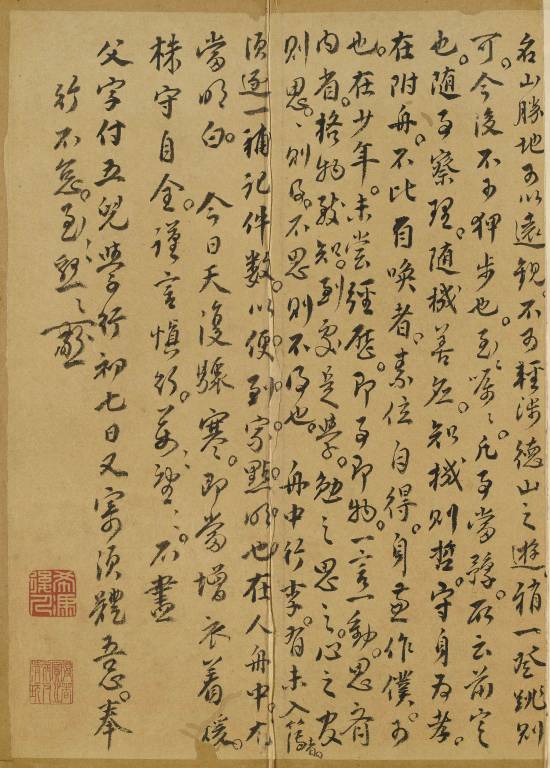 名山勝地可以遠觀。不可輕涉德山之遊。稍一登跳則
可。今後不可押步也。至囑。凡事當。所云前定
也。隨事察理。隨機善應。知機則哲。守身為孝。
在附舟。不比自喚者。素位自得。身兼作僕。可
也。在少年。未嘗經歷。即事即物。一言一動。思齊
內省。格物致知。到處是學。勉之思之。心之官
則思。思則得。不思則不得也。舟中行李。有未入簿者。
須逐一補記件數。以便到家點明也。在人舟中。尤
當明白。今日天復驟寒。即當增衣着煖。
株守自全。謹言慎行。萬望萬望。不盡
父字付五兒學行初七日又寄須體吾意。奉
行不怠。至懇至懇